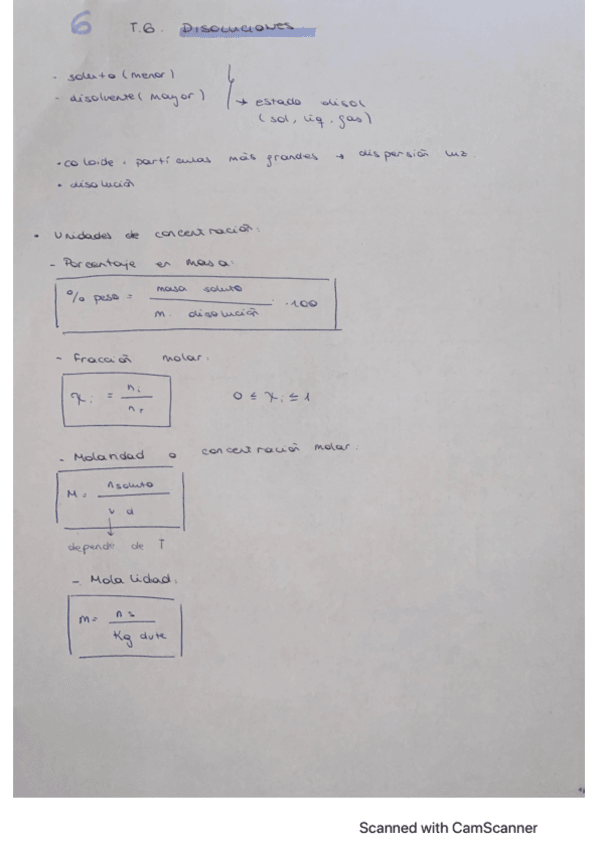 6 T.6. DISOLUCIONES
- soluto (menor)
- disolvente (mayor)
→ estado disol
(sol, liq, gas)
• coloide • partículas más grandes → dispersión luz
• disolución
• Unidades de concentración:
- Porcentaje en masa:
% peso = masa soluto / m. disolución · 100
- Fracción molar:
χi = ni / nT
0 ≤ χi ≤ 1
- Molaridad o concentración molar:
M = nsoluto / v d
depende de T
- Molalidad:
m = ns / Kg dvte
Scanned with CamScanner